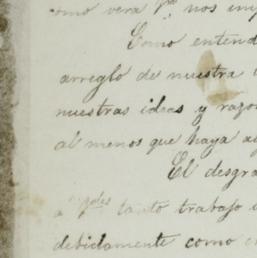 como vera pª nos imp
Como entend
arreglo de nuestra
nuestras ideas y razo
al menos que haya a
El desgra
a tanto trabajo
debidamente como